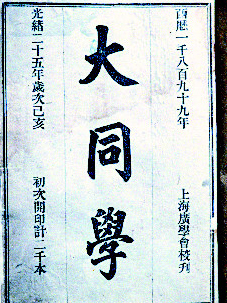 西曆一千八百九十九年
上海廣學會校刊
大同學
光緒二十五年歲次己亥
初次開印計二千本